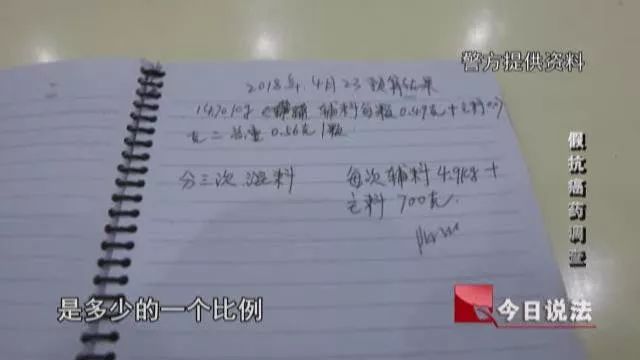 警方提供资料
2018年4月23预算结果
14.70kg 辅料每颗0.49克+主料0.07
克=总重0.56克/颗.
分三次混料 每次辅料4.9kg+
主料700克.
假抗癌药调查
是多少的一个比例
今日说法